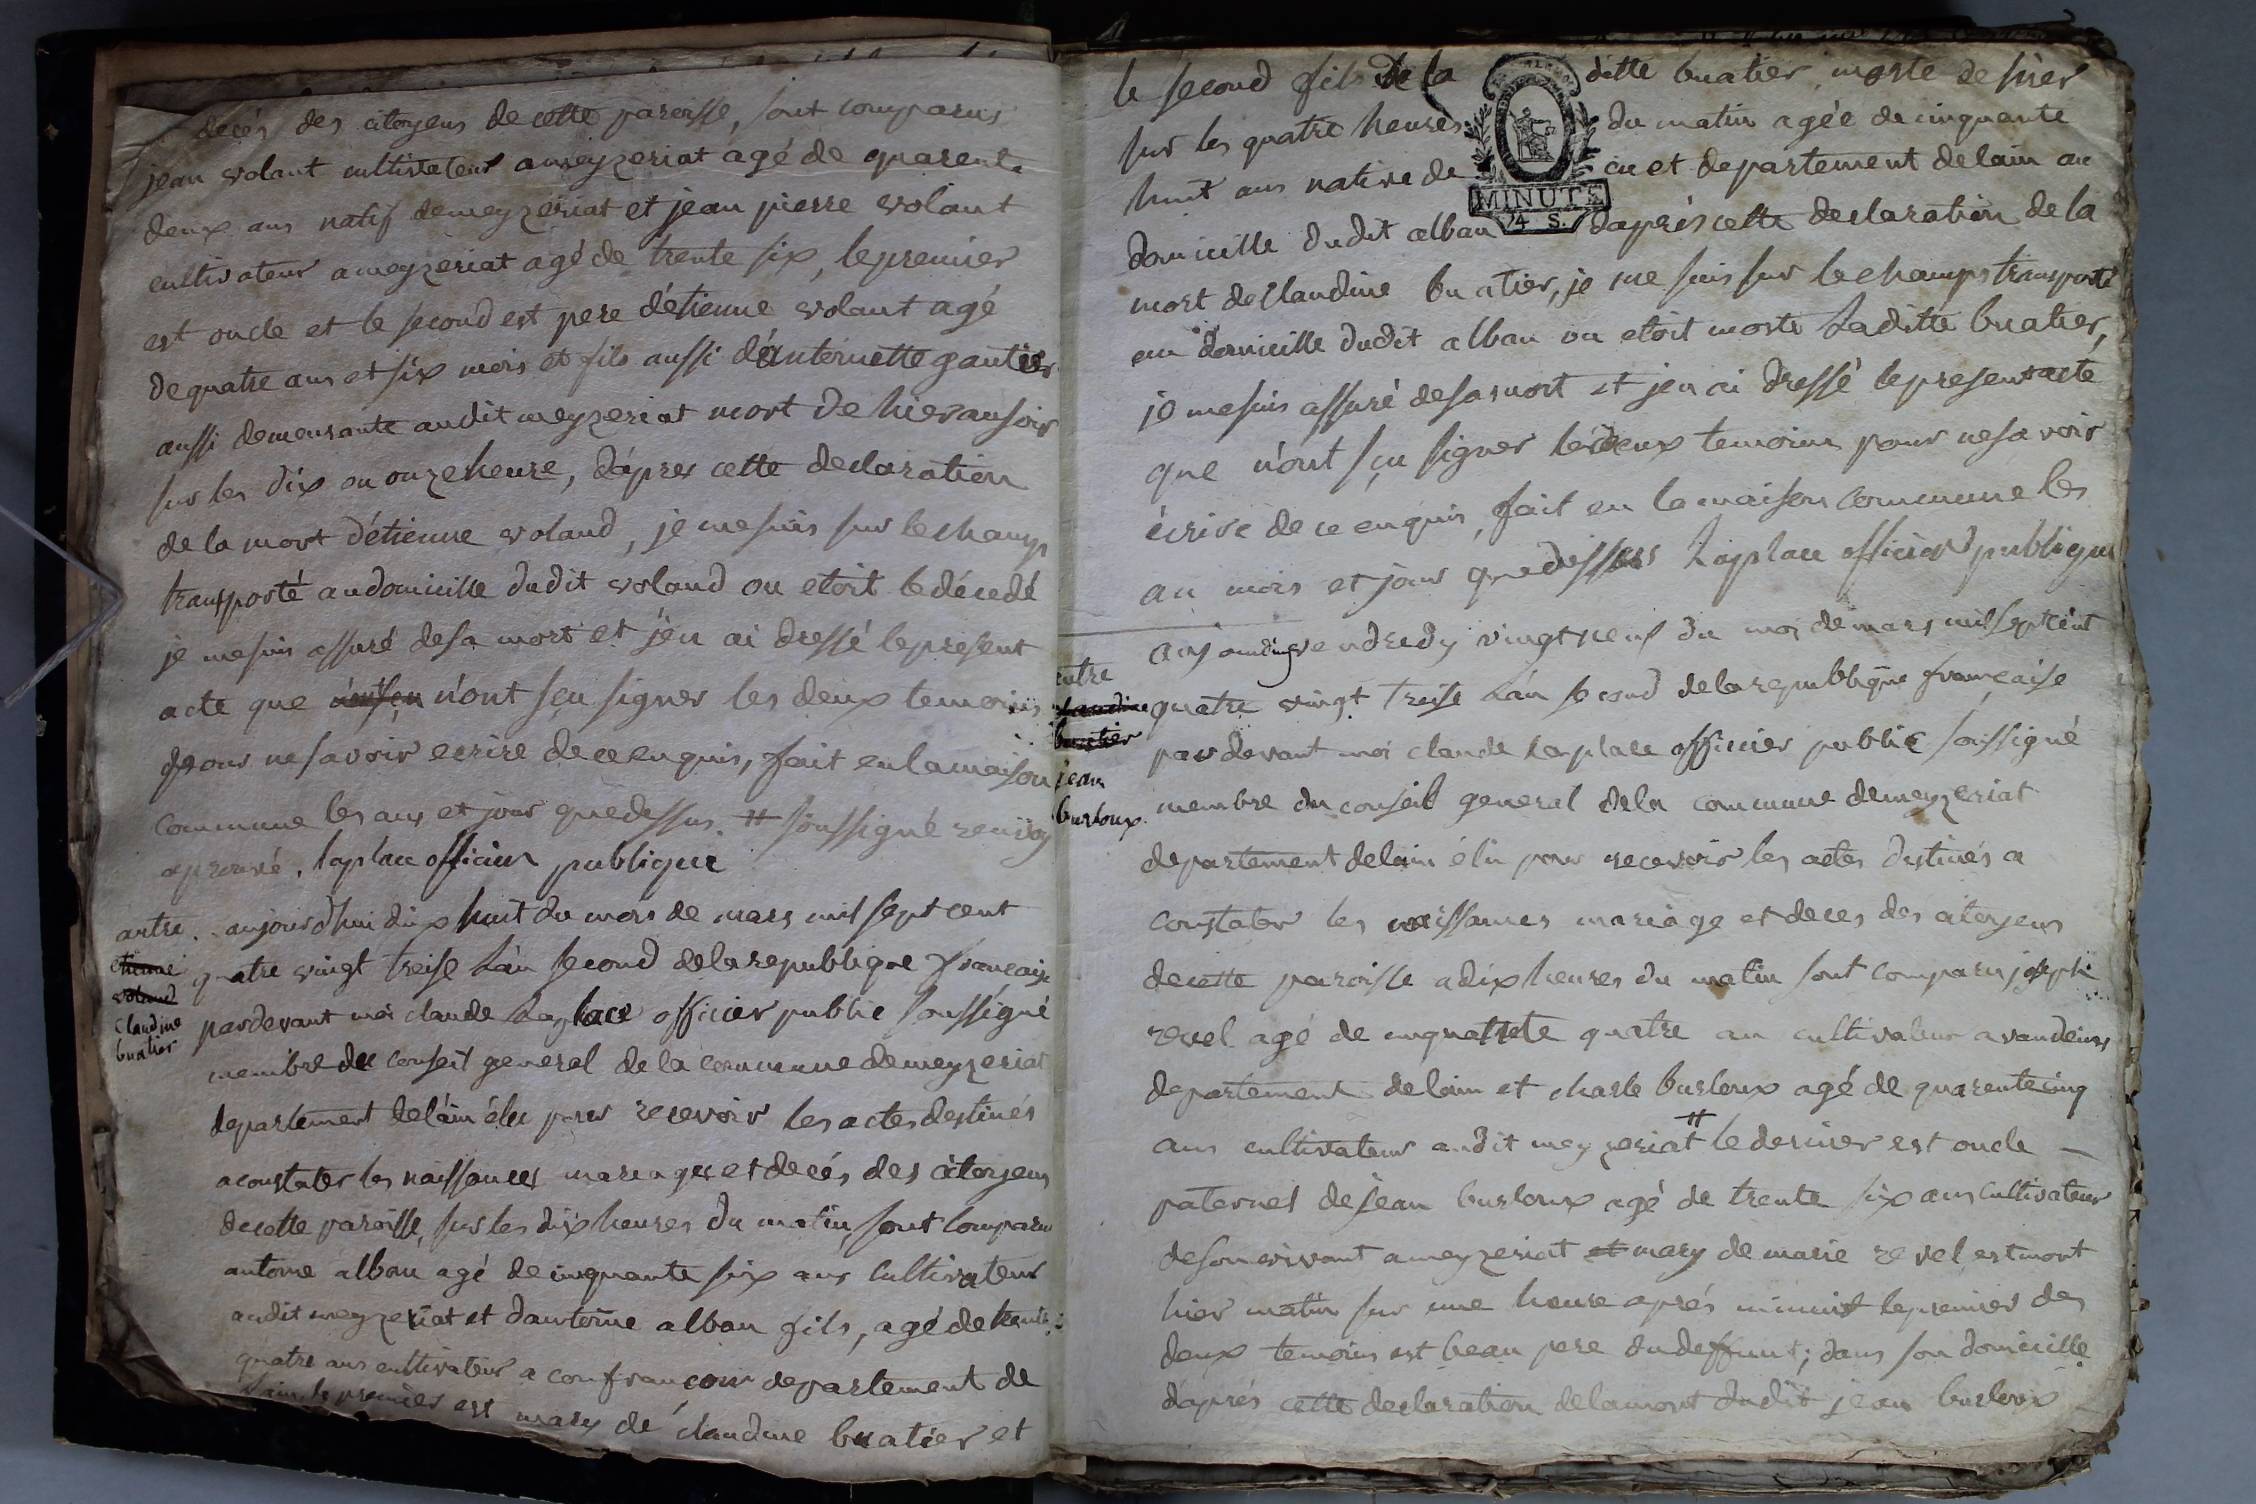 decés des citoyens de cette paroisse, sont comparus
jean volant cultivateur a meyzeriat agé de quarente
deux ans natif de meyzeriat et jean pierre volant
cultivateur a meyzeriat agé de trente six, le premier
est oncle et le second est pere d'étienne volant agé
de quatre ans et six mois et fils aussi d'antoinette gautier
aussi demeurante audit meyzeriat mort de hier au soir
sur les dix ou onze heure, d'aprés cette declaration
de la mort d'étienne voland, je me suis sur le champ
transporté au domicille dudit voland ou etoit le décedé
je me suis assuré de sa mort et j'en ai dressé le present
acte que n'ont sçu n'ont sçu signer les deux temoins
pour ne savoir ecrire de ce enquis, fait en la maison
commune les ans et jour que dessus. # soussigné renvoy
aprouvé. laplace officier publique
autre. aujourd'hui dix huit du mois de mars mil sept cent
etienne
voland
claudine
buatier
quatre vingt treise L'an second de la republique francaise
pardevant moi claude Laplace officier public soussigné
membre du conseil general de la commune de meyzeriat
departement de l'ain élu pour recevoir les actes destinés
a constater les naissances mariages et decés des citoyens
de cette paroisse, sur les dix heures du matin, sont comparu
antoine alban agé de cinquante six ans cultivateur
audit meyzeriat et d'antoine alban fils, agé de trente
quatre ans cultivateur a confrançon departement de
l'ain le premier est mary de claudine buatier et
le second fils de la ditte buatier, morte de hier
sur les quatre heures du matin agée de cinquante
huit ans native de cu et departement de lain au
domicille dudit alban d'aprés cette declaration de la
MINUTE
4 S.
mort de Claudine buatier, je me suis sur le champs transporté
au domicille dudit alban ou etoit morte Laditte buatier,
je me suis assuré de sa mort et j'en ai dressé le present acte
que n'ont sçu signer les deux temoins pour ne savoir
écrire de ce enquis, fait en la maison commune les
an mois et jour que dessus Laplace officier publique
autre
claudine
buatier
jean
burloux
vendredy vingt neuf du moi de mars mil sept cent
quatre vingt treise L'an second de la republique française
pardevant moi claude Laplace officier public soussigné
membre du conseil general de la commune de meyzeriat
departement de lain élu pour recevoir les actes destinés a
constater les naissances mariage et deces des citoyens
de cette paroisse a dix heures du matin sont comparu joseph
revel agé de cinquante quatre an cultivateur a vandeins
departement de lain et charle burloux agé de quarente cinq
ans cultivateur audit meyzeriat # le dernier est oncle
paternel de jean burloux agé de trente six ans cultivateur
de son vivant a meyzeriat et mary de marie revel est mort
hier matin sur une heure aprés minuit le premier des
deux temoins est beau pere du deffunt; dans son domicille
d'aprés cette declaration de la mort dudit jean burloux